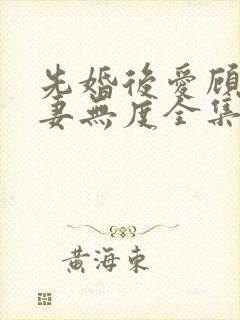 先婚後愛顧
妻無度全集
黃海東